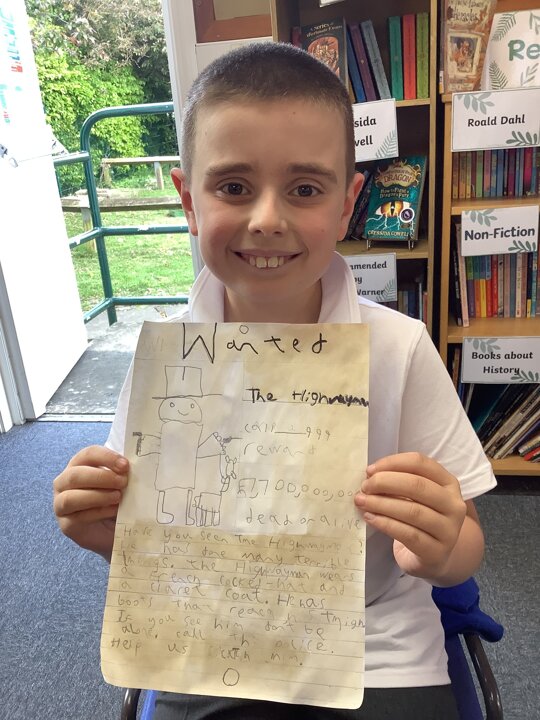 Wanted
The Highwayman
call: 999
reward
£7,700,000,00
dead or alive
Have you seen The Highwayma
He has done many terrible
things. The Highwayman wears
a french cocked-hat and
a claret coat. He has
boots than reach his Thigh
If you see him don't be
alone. call the police.
Help us catch him.
Roald Dahl
Non-Fiction
Books about
History
Re
sida
well
CRESSIDA COWELL
mmended
by
Warner